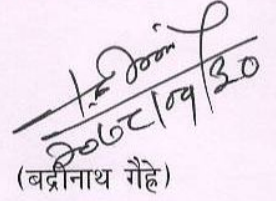 २०७८/०५/३०
(बद्रीनाथ गैह्रे)